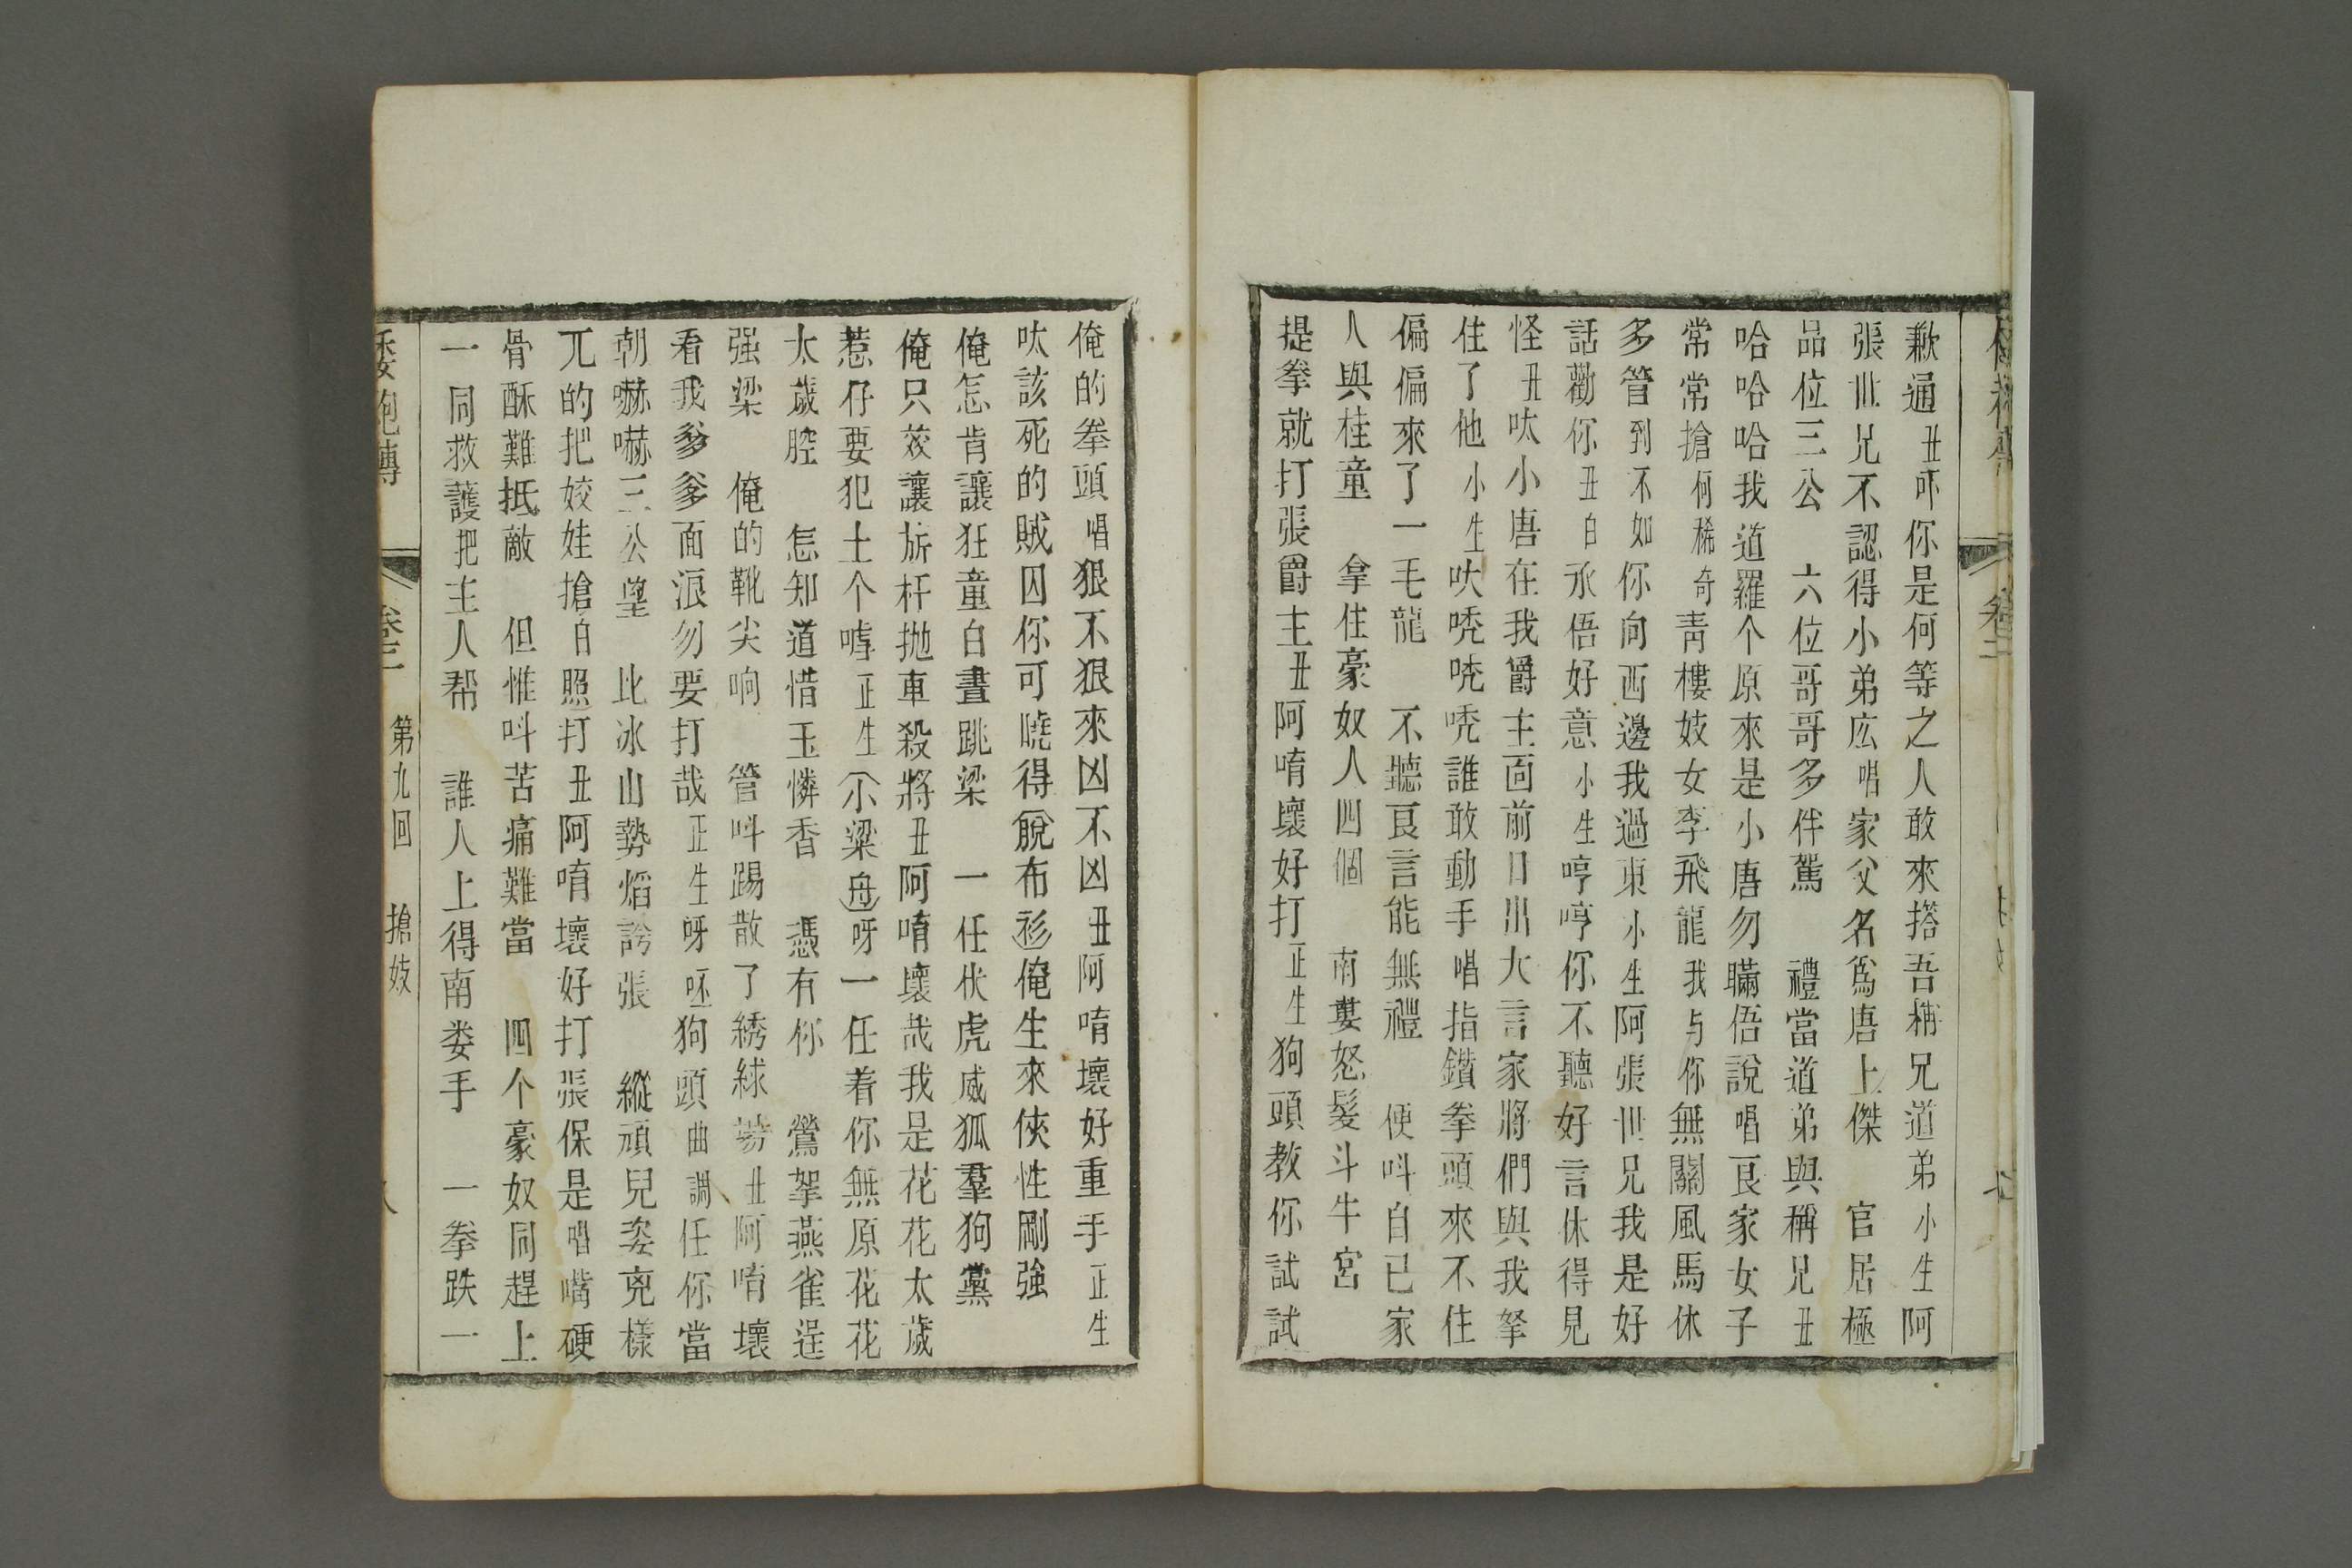 歉通丑㕶你是何等之人敢來搭吾稱兄道弟小生阿
張世兄不認得小弟広唱家父名爲唐上傑 官居極
品位三公 六位哥哥多伴駕 禮當道弟與稱兄丑
哈哈哈我道羅个原來是小唐勿瞞俉說唱良家女子
常常搶何稀奇靑樓妓女李飛龍我与你無關風馬休
多管到不如你向西邊我過東小生阿張世兄我是好
話勸你丑白承俉好意小生哼哼你不聽好言休得見
怪丑呔小唐在我爵主面前日出大言家將們與我拏
住了他小生呔唗唗唗誰敢動手唱指鑽拳頭來不住
偏偏來了一毛龍 不聽良言能無禮 便呌自已家
人與桂童 拿住豪奴人四個 南蔞怒髮斗牛宮
提拳就打張爵主丑阿唷壞好打正生狗頭教你試試
俺的拳頭唱狠不狠來凶不凶丑阿唷壞好重手正生
呔該死的賊囚你可曉得(脫布衫)俺生來俠性剛強
俺怎肯讓狂童白晝跳梁 一任伏虎威狐羣狗黨
俺只效讓旂杆拋車殺將丑阿唷壞哉我是花花太歲
惹仔要犯土个嘑正生(小梁舟)呀一任着你無原花花
太歲腔 怎知道惜玉憐香 憑有你 鶯挐燕雀逞
强梁 俺的靴尖响 管呌踢散了綉綵場丑阿唷壞
看我爹爹面浪勿要打哉正生呀呸狗頭曲調任你當
朝嚇嚇三公望 比冰山勢熖誇張 縱頑兒姿兇樣
兀的把姣娃搶白照打丑阿唷壞好打張保是唱嘴硬
骨酥難抵敵 但惟呌苦痛難當 四个豪奴同趕上
一同救護把主人帮 誰人上得南娄手 一拳跌一
卷三 第九回 搶妓